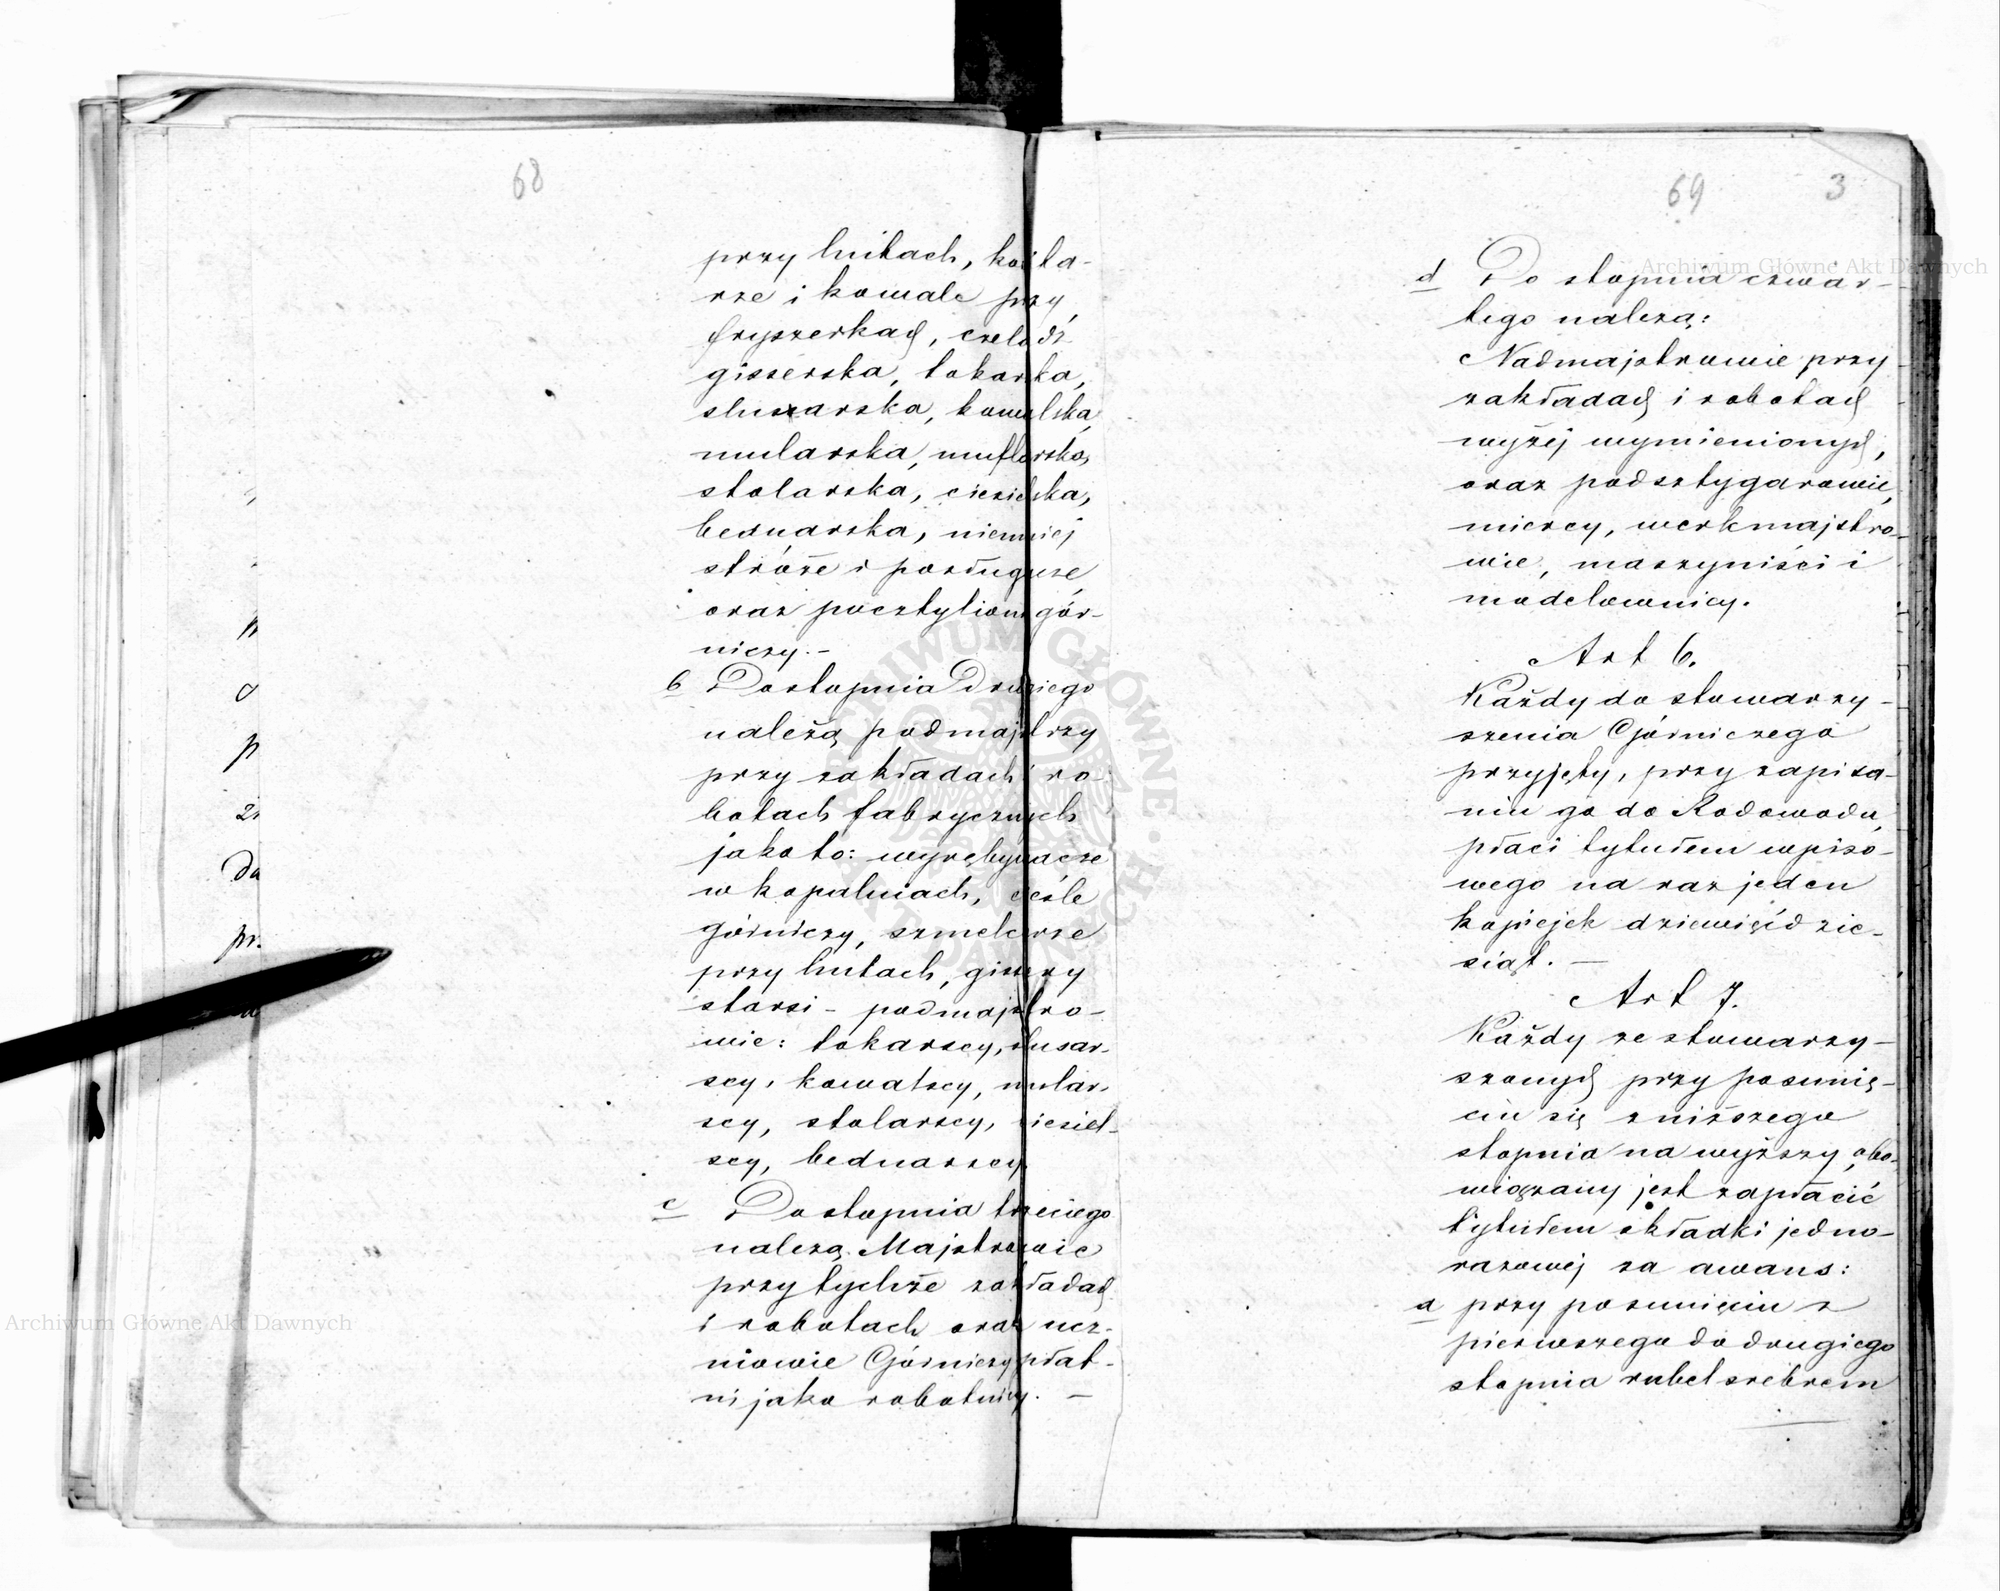 68
przy hutach, kotla-
rze i kowale przy
fryszerkach, czeladź
gisserska, tokarska,
slusarska, kowalska,
mularska, muflarska,
stolarska, ciesielska,
bednarska, niemniej
stróże i posługacze
oraz pocztylion gór-
niczy.-
b Do stopnia drugiego
należą podmajstrzy
przy zakładach i ro-
botach fabrycznych
jako to: wyrębywacze
w kopalniach, cieśle
górniczy, szmelcerze
przy hutach, gisserzy
starsi - podmajstro-
wie: tokarscy, slusar-
scy, kowalscy, mular-
scy, stolarscy, ciesiel-
scy, bednarscy
c Do stopnia trzeciego
należą Majstrowie
przy tychże zakładach
i robotach oraz ucz-
niowie Górniczy płat-
ni jako robotnicy. -
p
d
p
Da
pr.
69 3
d Do stopnia czwar-
tego należą:
Nadmajstrowie przy
zakładach i robotach
wyżej wymienionych,
oraz podsztygarowie,
miercy, werkmajstro-
wie, maszyniści i
modelownicy.
Art 6.
Każdy do stowarzy-
szenia Górniczego
przyjęty, przy zapisa-
niu go do Rodowodu,
płaci tytułem wpiso-
wego na raz jeden
kopiejek dziewięćdzie-
siąt. -
Art 7.
Każdy ze stowarzy-
szonych przy posunię-
ciu się z niższego
stopnia na wyższy, obo-
wiązany jest zapłacić
tytułem składki jedno-
razowej za awans:
a przy posunięciu z
pierwszego do drugiego
stopnia rubel srebrem
Archiwum Główne Akt Dawnych
Archiwum Główne Akt Dawnych
ARCHIWUM GŁÓWNE AKT DAWNYCH